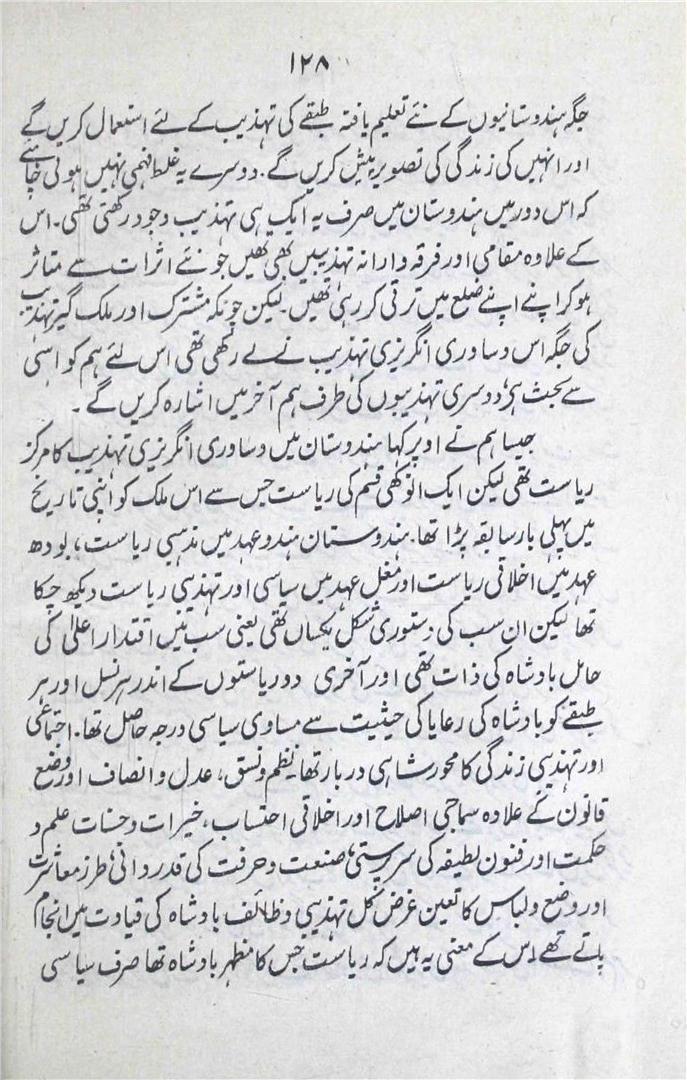 ۱۲۸
جگہ ہندوستانیوں کے نئے تعلیم یافتہ طبقے کی تہذیب کے لئے استعمال کریں گے
اور انہیں کی زندگی کی تصویر پیش کریں گے. دوسرے یہ غلط فہمی نہیں ہونی چاہئے
کہ اس دور میں ہندوستان میں صرف یہ ایک ہی تہذیب وجود رکھتی تھی۔ اس
کے علاوہ مقامی اور فرقہ وارانہ تہذیبیں بھی تھیں جو نئے اثرات سے متاثر
ہو کر اپنے اپنے ضلع میں ترقی کر رہی تھیں۔ لیکن چونکہ مشترک اور ملک گیر تہذیب
کی جگہ اس دساوری انگریزی تہذیب نے لے رکھی تھی اس لئے ہم کو اسی
سے بحث ہے، دوسری تہذیبوں کی طرف ہم آخر میں اشارہ کریں گے ۔
جیسا ہم نے اوپر کہا ہندوستان میں دساوری انگریزی تہذیب کا مرکز
ریاست تھی لیکن ایک انوکھی قسم کی ریاست جس سے اس ملک کو اپنی تاریخ
میں پہلی بار سابقہ پڑا تھا. ہندوستان ہندو عہد میں مذہبی ریاست، بودھ
عہد میں اخلاقی ریاست اور مغل عہد میں سیاسی اور تہذیبی ریاست دیکھ چکا
تھا لیکن ان سب کی دستوری شکل یکساں تھی یعنی سب میں اقتدار اعلٰی کی
حامل بادشاہ کی ذات تھی اور آخری دو ریاستوں کے اندر ہر نسل اور ہر
طبقے کو بادشاہ کی رعایا کی حیثیت سے مساوی سیاسی درجہ حاصل تھا. اجتماعی
اور تہذیبی زندگی کا محور شاہی دربار تھا۔ نظم و نسق، عدل و انصاف اور وضع
قانون کے علاوہ سماجی اصلاح اور اخلاقی احتساب، خیرات و حسنات علم و
حکمت اور فنون لطیفہ کی سرپرستی، صنعت و حرفت کی قدردانی، طرز معاشرت
اور وضع و لباس کا تعین غرض کل تہذیبی وظائف بادشاہ کی قیادت میں انجام
پاتے تھے۔ اس کے معنی یہ ہیں کہ ریاست جس کا مظہر بادشاہ تھا صرف سیاسی